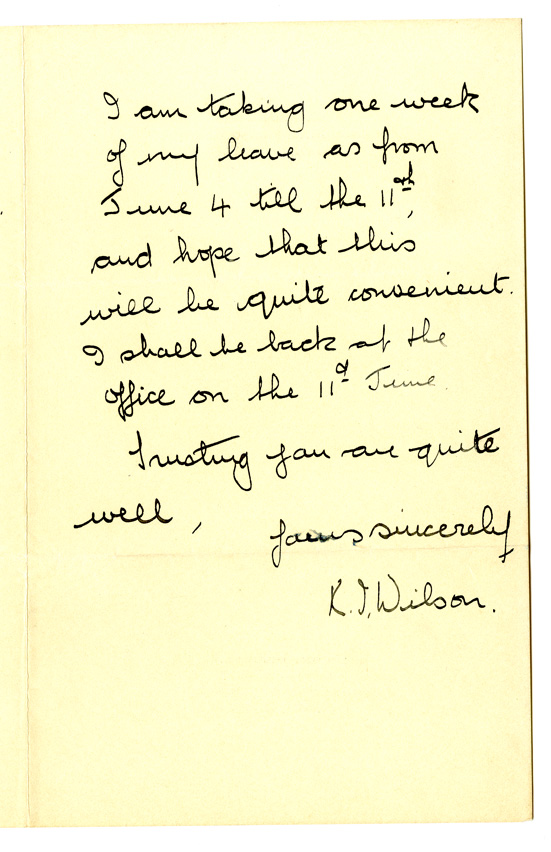 I am taking one week
of my leave as from
June 4 till the 11th,
and hope that this
will be quite convenient.
I shall be back at the
office on the 11th June.
Trusting you are quite
well,
yours sincerely
K.I. Wilson.